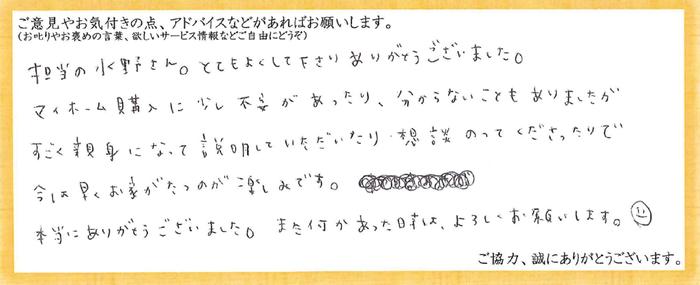 ご意見やお気付きの点、アドバイスなどがあればお願いします。
(お叱りやお褒めの言葉、欲しいサービス情報などご自由にどうぞ)
担当の水野さん。とてもよくして下さりありがとうございました。
マイホーム購入に少し不安があったり、分からないこともありましたが
すごく親身になって説明していただいたり想談のってくださったりで
今は早くお家がたつのが楽しみです。
本当にありがとうございました。また何かあった時は、よろしくお願いします。
ご協力、誠にありがとうございます。